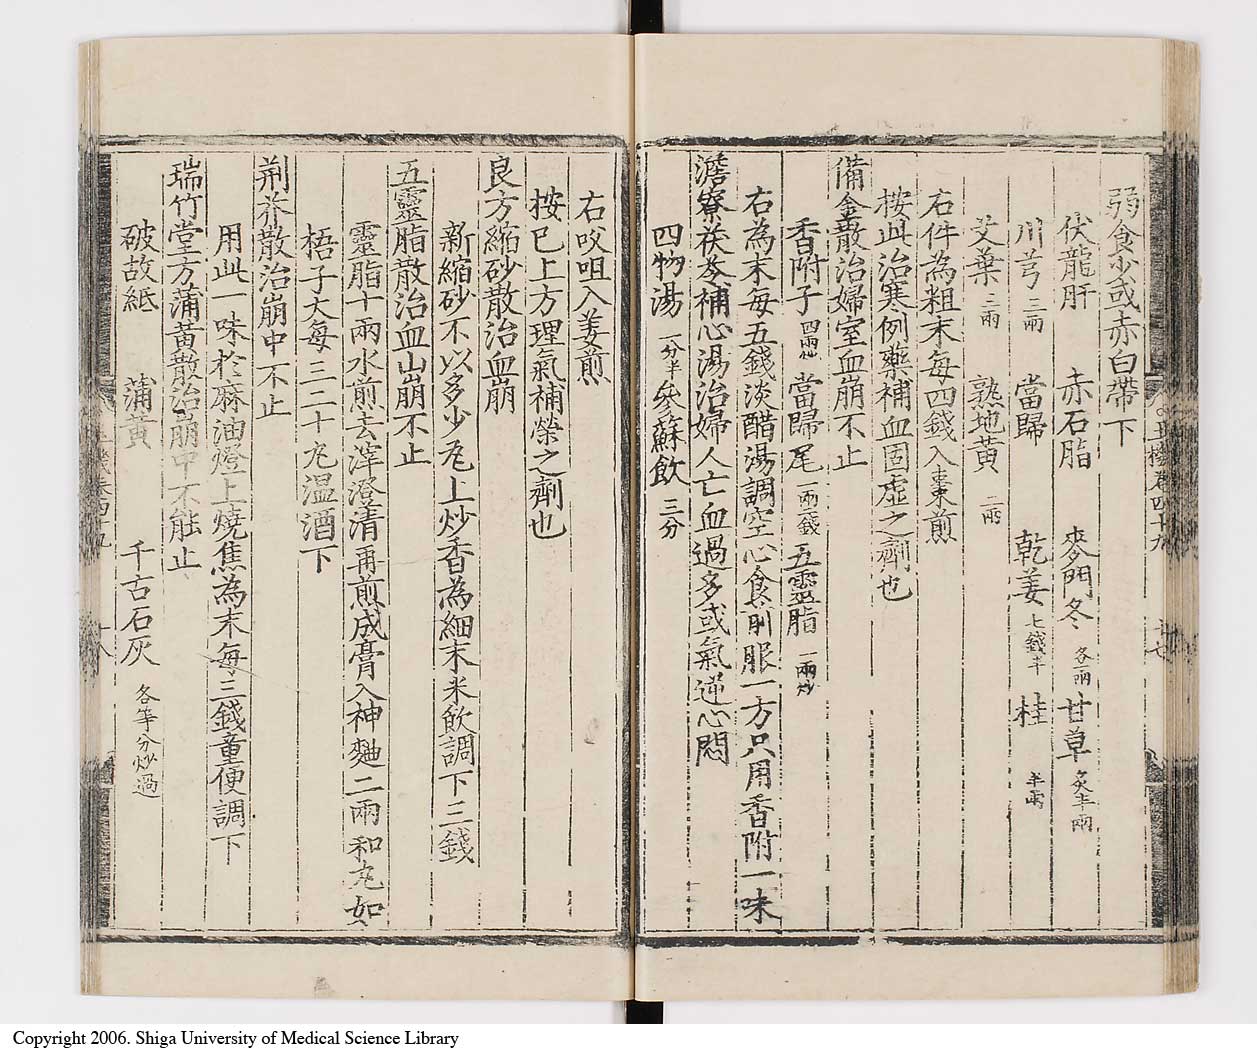 弱食少或赤白帶下
伏龍肝 赤石脂 麥門冬 各一兩 甘草 炙半兩
川芎 三兩 當歸 乾姜 七錢半 桂 半兩
艾葉 二兩 熟地黃 二兩
右件為粗末每四錢入棗煎
按此治寒例藥補血固虛之劑也
備金散治婦室血崩不止
香附子 四兩炒 當歸尾 一兩二錢 五靈脂 一兩炒
右為末每五錢淡醋湯調空心食前服一方只用香附一味
澹寮茯苓補心湯治婦人亡血過多或氣逆心悶
四物湯 一分半 參蘇飲 三分
右㕮咀入姜煎
按已上方理氣補榮之劑也
良方縮砂散治血崩
新縮砂不以多少瓦上炒香為細末米飲調下三錢
五靈脂散治血山崩不止
靈脂十兩水煎去滓澄清再煎成膏入神麯二兩和丸如
梧子大每三二十丸温酒下
荆芥散治崩中不止
用此一味於麻油燈上燒焦為末每三錢童便調下
瑞竹堂方蒲黃散治崩中不能止
破故紙 蒲黃 千古石灰 各等分炒過
Copyright 2006. Shiga University of Medical Science Library